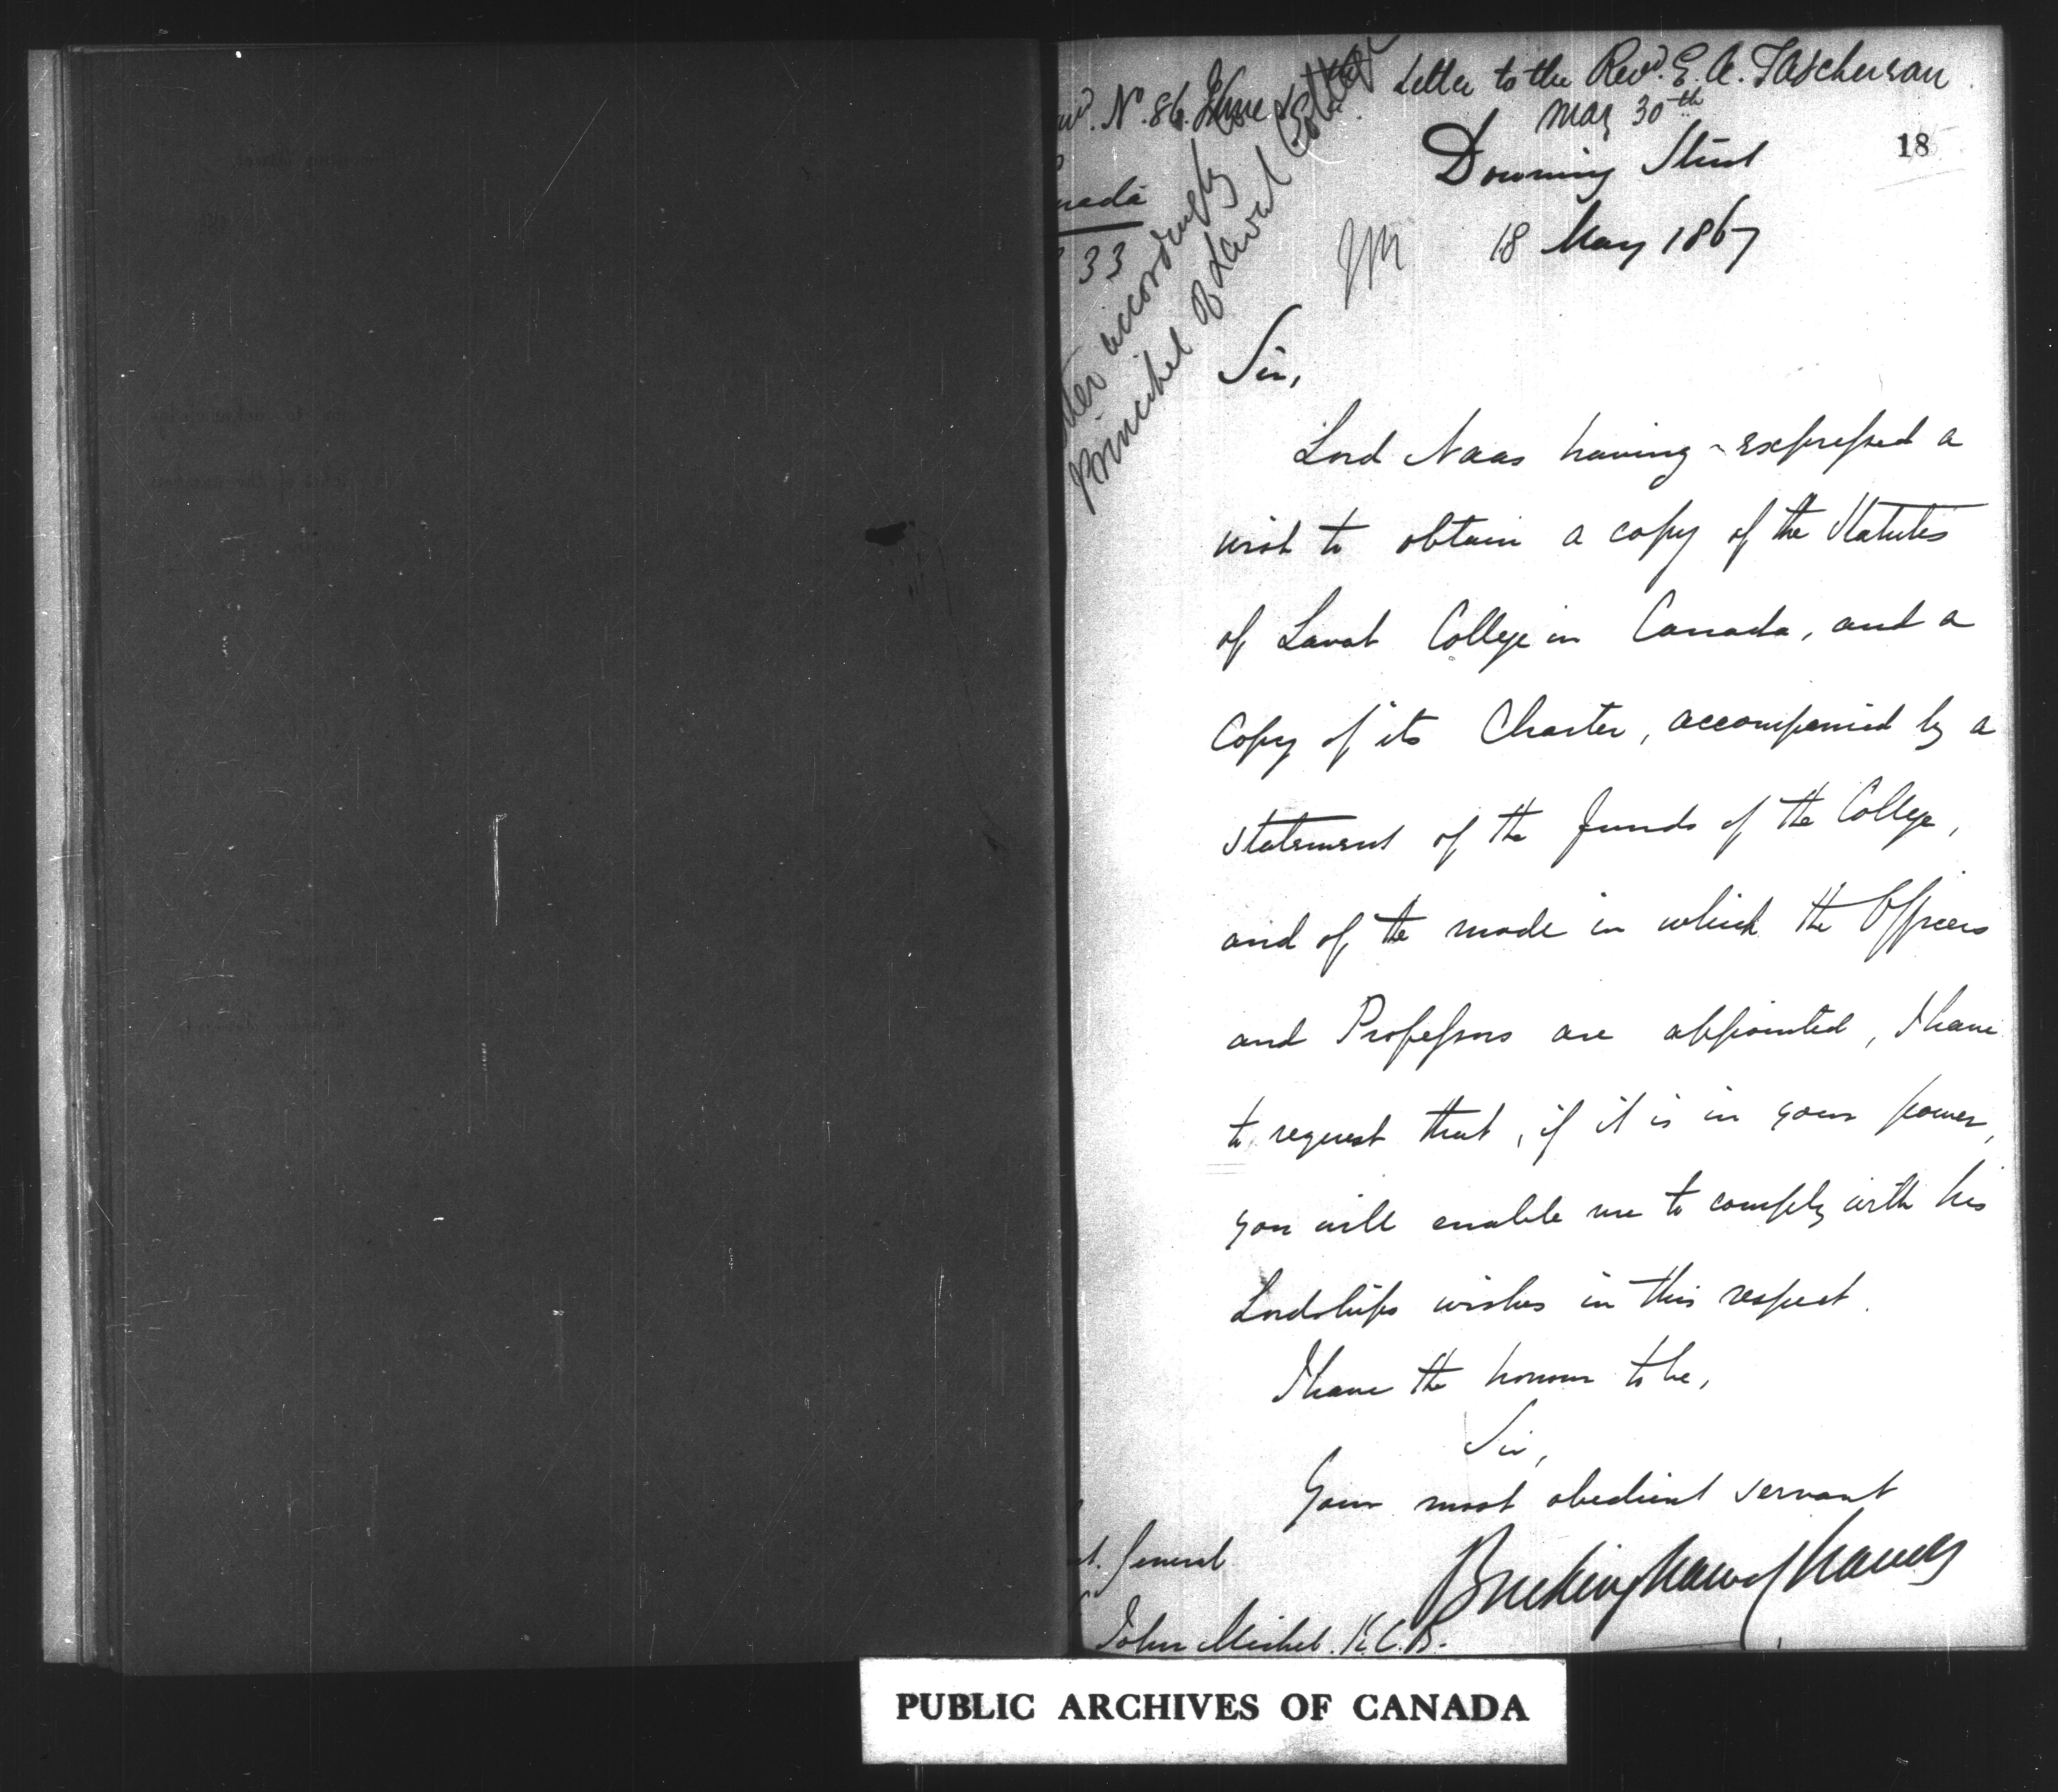 Letter to the Revd. E. A. Taschereau
May 30th
No. 86. June
18
Downing Street
18 May 1867
nada
33
accordingly to
Principal of Laval College
Sir,
Lord Naas having expressed a
wish to obtain a copy of the Statutes
of Laval College in Canada, and a
Copy of its Charter, accompanied by a
statement of the funds of the College,
and of the mode in which the Officers
and Professors are appointed, I have
to request that, if it is in your power,
you will enable me to comply with his
Lordships wishes in this respect.
I have the honour to be,
Sir,
Your most obedient servant
Buckingham & Chandos
t. General
John Michel. K.C.B.
PUBLIC ARCHIVES OF CANADA